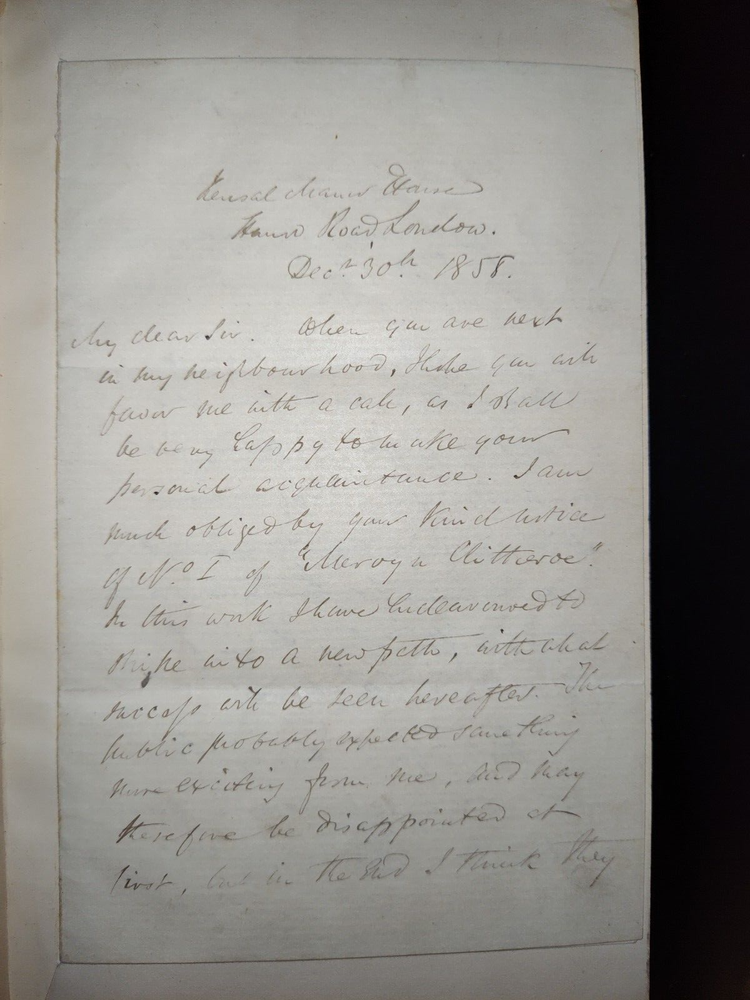 Kensal Manor House
Harrow Road London.
Decr 30th 1858.
My dear Sir. When you are next
in my neighbourhood, I hope you will
favor me with a call, as I shall
be very happy to make your
personal acquaintance. I am
much obliged by your kind notice
of No. I of "Mervyn Clitheroe".
In this work I have endeavoured to
strike into a new path, with what
success will be seen hereafter. The
public probably expected something
more exciting from me, and may
therefore be disappointed at
first, but in the end I think they